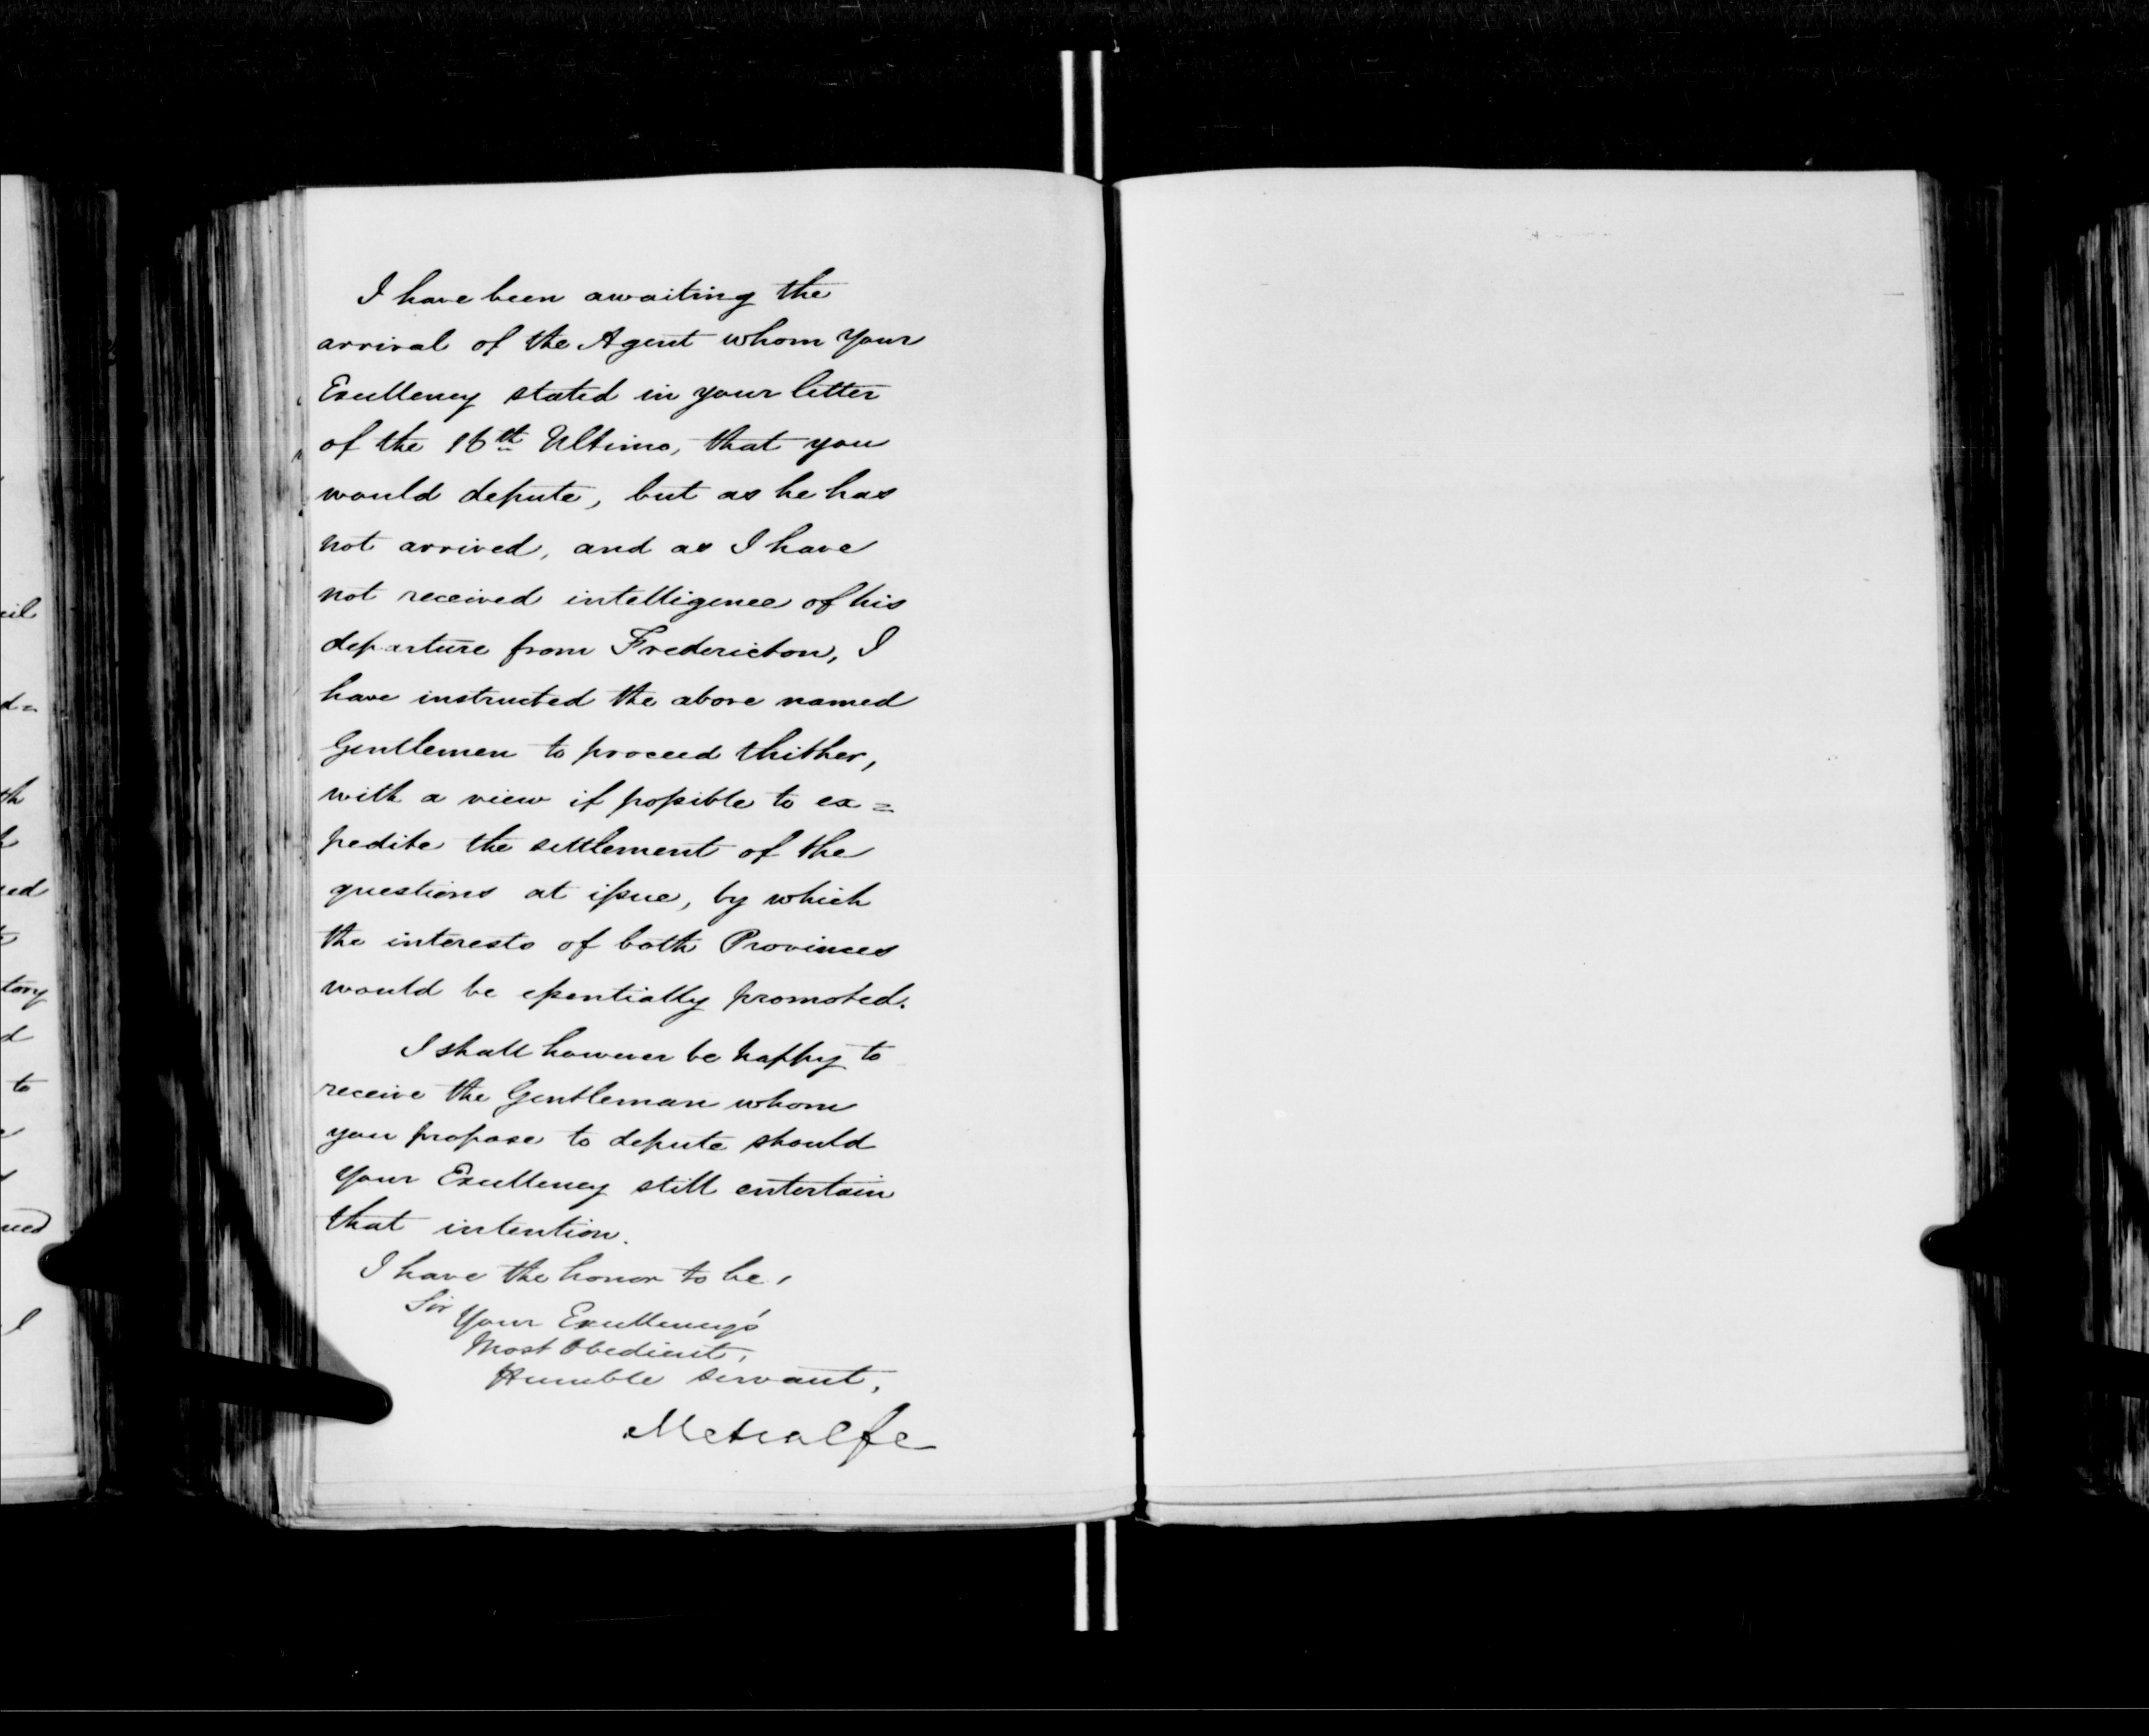 I have been awaiting the
arrival of the Agent whom Your
Excellency stated in your letter
of the 16th Ultimo, that you
would depute, but as he has
not arrived, and as I have
not received intelligence of his
departure from Fredericton, I
have instructed the above named
Gentlemen to proceed thither,
with a view if possible to ex=
pedite the settlement of the
questions at issue, by which
the interests of both Provinces
would be essentially promoted.
I shall however be happy to
receive the Gentleman whom
you propose to depute should
Your Excellency still entertain
that intention.
I have the honor to be,
Sir
Your Excellency's
Most Obedient,
Humble servant,
Metcalfe